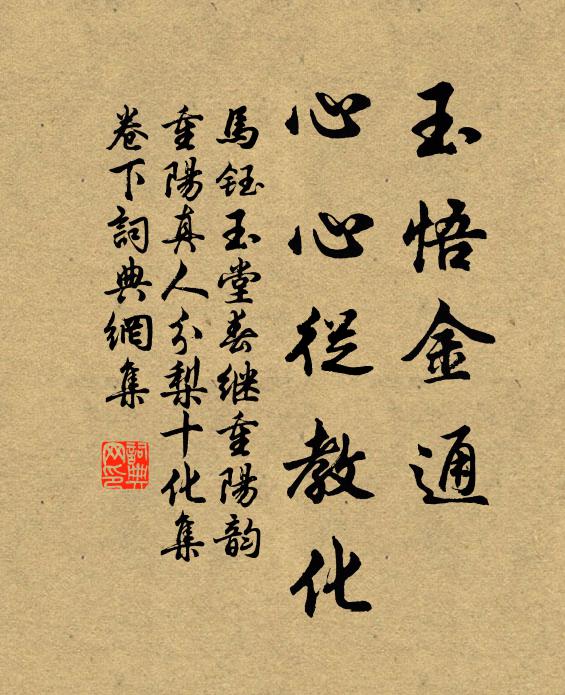 玉悟金通
心心從教化
馬鈺玉堂春继重陽韵
重陽真人分梨十化集
卷下詞典網集
詞典
网印